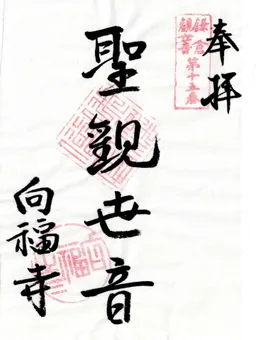 奉拝
鎌倉
観世音
第十五番
聖觀世音
向福寺